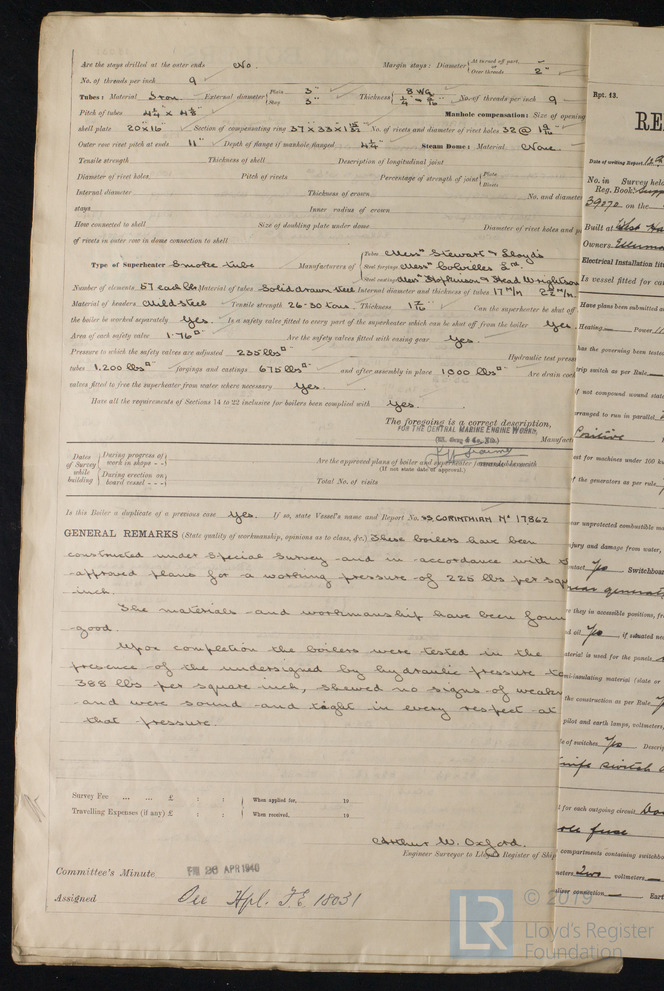 Are the stays drilled at the outer ends No. Margin stays: Diameter { At turned off part, or Over threads 2"
No. of threads per inch 9
Tubes: Material Iron External diameter { Plain 3" Stay 3" Thickness { 8 WG 1/4" - 5/16" No. of threads per inch 9
Pitch of tubes 4 1/4 x 4 1/8 Manhole compensation: Size of opening
shell plate 20 x 16" Section of compensating ring 37 x 33 x 1 15/32 No. of rivets and diameter of rivet holes 32 @
Outer row rivet pitch at ends 11" Depth of flange if manhole flanged 4 1/4" Steam Dome: Material None
Tensile strength Thickness of shell Description of longitudinal joint
Diameter of rivet holes Pitch of rivets Percentage of strength of joint { Plate Rivets
Internal diameter Thickness of crown No. and diameter
stays Inner radius of crown
How connected to shell Size of doubling plate under dome Diameter of rivet holes and
of rivets in outer row in dome connection to shell
Type of Superheater Smoke tube Manufacturers of { Tubes Messrs Stewart & Lloyds
Steel forgings Messrs Colvilles Ltd.
Steel castings Messrs Hopkinson & Head Wrightson
Number of elements 57 each blr Material of tubes Solid drawn steel Internal diameter and thickness of tubes 17 m/m 2 1/2 m/m
Material of headers Mild steel Tensile strength 26-30 tons Thickness Can the superheater be shut off
the boiler be worked separately Yes. Is a safety valve fitted to every part of the superheater which can be shut off from the boiler Yes
Area of each safety valve 1.76 □" Are the safety valves fitted with easing gear Yes.
Pressure to which the safety valves are adjusted 235 lbs □" Hydraulic test pressure
tubes 1,200 lbs □" forgings and castings 675 lbs □" and after assembly in place 1,000 lbs □" Are drain cocks
valves fitted to free the superheater from water where necessary Yes.
Have all the requirements of Sections 14 to 22 inclusive for boilers been complied with Yes.
The foregoing is a correct description,
FOR THE CENTRAL MARINE ENGINE WORKS,
(Wm. Gray & Co., Ltd.) Manufact
Dates of Survey while building { During progress of work in shops - - } { During erection on board vessel - - - }
Are the approved plans of boiler and superheater forwarded herewith
(If not state date of approval.)
Total No. of visits
Is this Boiler a duplicate of a previous case Yes. If so, state Vessel's name and Report No. SS CORINTHIAN No 17862
GENERAL REMARKS (State quality of workmanship, opinions as to class, &c.) These boilers have been
constructed under Special Survey and in accordance with
approved plans for a working pressure of 225 lbs per squ
inch.
The materials and workmanship have been foun
good.
Upon completion the boilers were tested in the
presence of the undersigned by hydraulic pressure to
388 lbs per square inch, shewed no signs of weakn
and were sound and tight in every respect at
that pressure.
Survey Fee ... ... £ : : When applied for, 19
Travelling Expenses (if any) £ : : When received, 19
Arthur W. Oxford.
Engineer Surveyor to Lloyd's Register of Ship
Committee's Minute FRI 26 APR 1940
Assigned See Hpl. F.E. 18031
Rpt. 13.
RE
Date of writing Report
No. in Survey held
Reg. Book.
39070 on the
Built at West Ha
Owners Ellerma
Electrical Installation fitt
Is vessel fitted for ca
Have plans been submitted a
Heating Power
has the governing been teste
trip switch as per Rule
if not compound wound state
arranged to run in parallel
Positive
est for machines under 100 k
f the generators as per rule
ear unprotected combustible m
njury and damage from water,
ontact Yes Switchboar
near generat
re they in accessible positions, fr
nd oil Yes if situated ne
aterial is used for the panels
mi-insulating material (slate or
the construction as per Rule
pilot and earth lamps, voltmeters,
le of switches Yes Descrip
knife switch
d for each outgoing circuit
pole fuse
compartments containing switchbo
meters Two voltmeters
aliser connection Eart
© 2019
LR
Lloyd's Register
Foundation